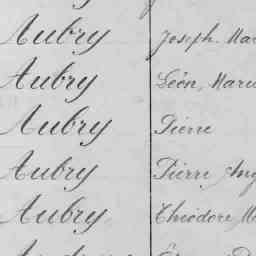 Aubry Joseph. Mar
Aubry Léon, Marie
Aubry Pierre
Aubry Pierre Ang
Aubry Théodore M